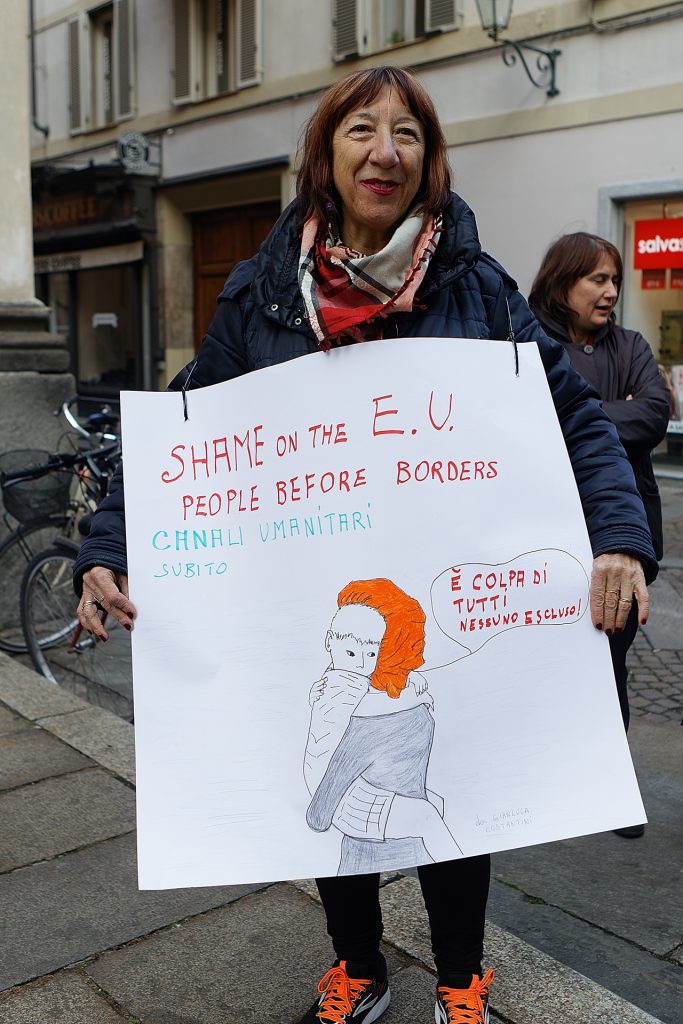 SHAME ON THE E.U.
PEOPLE BEFORE BORDERS
CANALI UMANITARI
SUBITO
È COLPA DI
TUTTI
NESSUNO ESCLUSO!
GIANLUCA
COSTANTINI
salvas